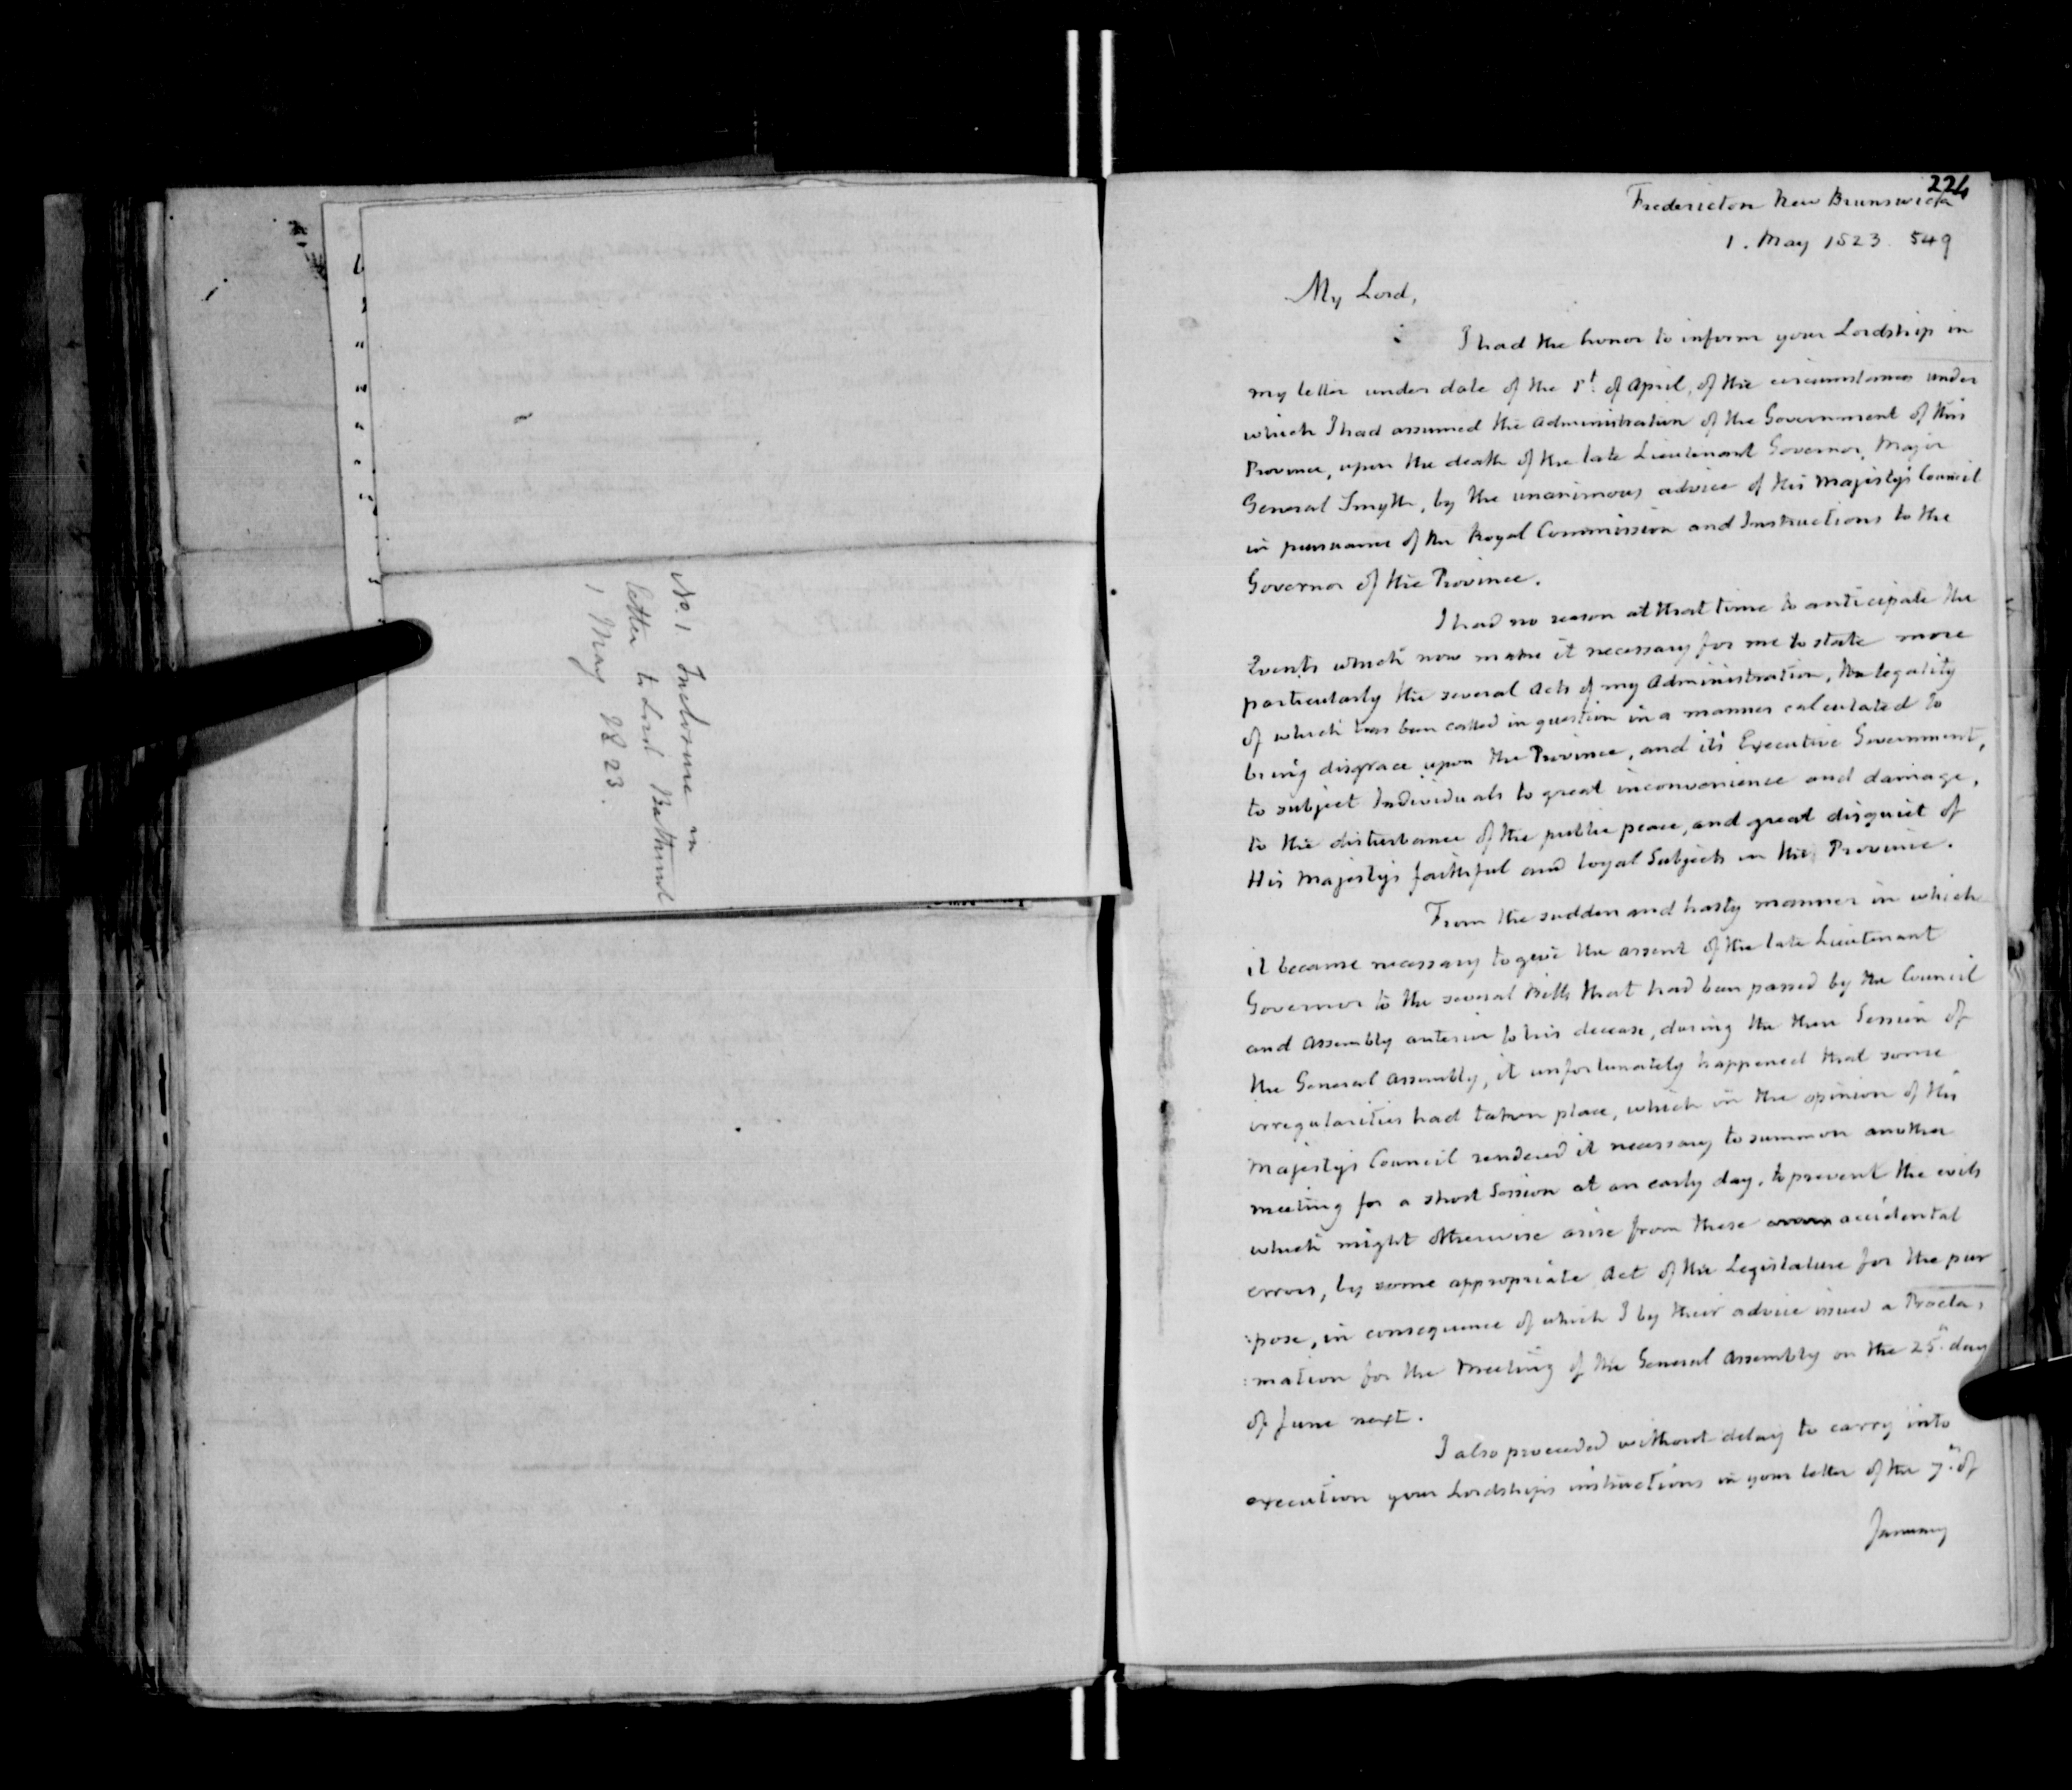 No. 1 Inclosure in
letter to Lord Bathurst
1 May 1823.
224
Fredericton New Brunswick
1. May 1823. 549
My Lord,
I had the honor to inform your Lordship in
my letter under date of the 1st. of April, of the circumstances under
which I had assumed the Administration of the Government of this
Province, upon the death of the late Lieutenant Governor, Major
General Smyth, by the unanimous advice of His Majesty's Council
in pursuance of the Royal Commission and Instructions to the
Governor of the Province.
I had no reason at that time to anticipate the
Events which now make it necessary for me to state more
particularly the several Acts of my Administration, the legality
of which has been called in question in a manner calculated to
bring disgrace upon the Province, and it's Executive Government,
to subject Individuals to great inconvenience and damage,
to the disturbance of the public peace, and great disquiet of
His Majesty's faithful and loyal Subjects in the Province.
From the sudden and hasty manner in which
it became necessary to give the assent of the late Lieutenant
Governor to the several Bills that had been passed by the Council
and Assembly anterior to his decease, during the then Session of
the General Assembly, it unfortunately happened that some
irregularities had taken place, which in the opinion of His
Majesty's Council rendered it necessary to summon another
meeting for a short Session at an early day, to prevent the evils
which might otherwise arise from these accidental
errors, by some appropriate Act of the Legislature for the pur
:pose, in consequence of which I by their advice issued a Procla:
:mation for the Meeting of the General Assembly on the 25th. day
of June next.
I also proceeded without delay to carry into
execution your Lordships instructions in your letter of the 7th. of
January